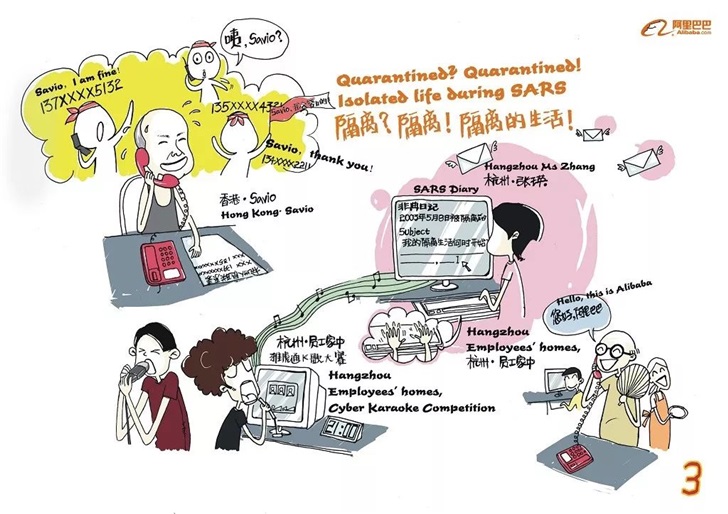 阿里巴巴
Alibaba.com
咦,Savio?
Savio, I am fine!
137XXXX5132
135XXXX4321
Savio,
Savio, thank you!
134XXXX2211
Quarantined? Quarantined!
Isolated life during SARS
隔离?隔离!隔离的生活!
香港·Savio
Hong Kong· Savio
Hangzhou Ms Zhang
杭州·张瑛
SARS Diary
非典日记
2003年5月8日
Subject
我的隔离生活何时开始?
Hello, this is Alibaba
您好,阿里巴巴
杭州·员工家中
Hangzhou
Employees' homes,
Cyber Karaoke Competition
21:00
Hangzhou
Employees' homes,
杭州·员工家中
3